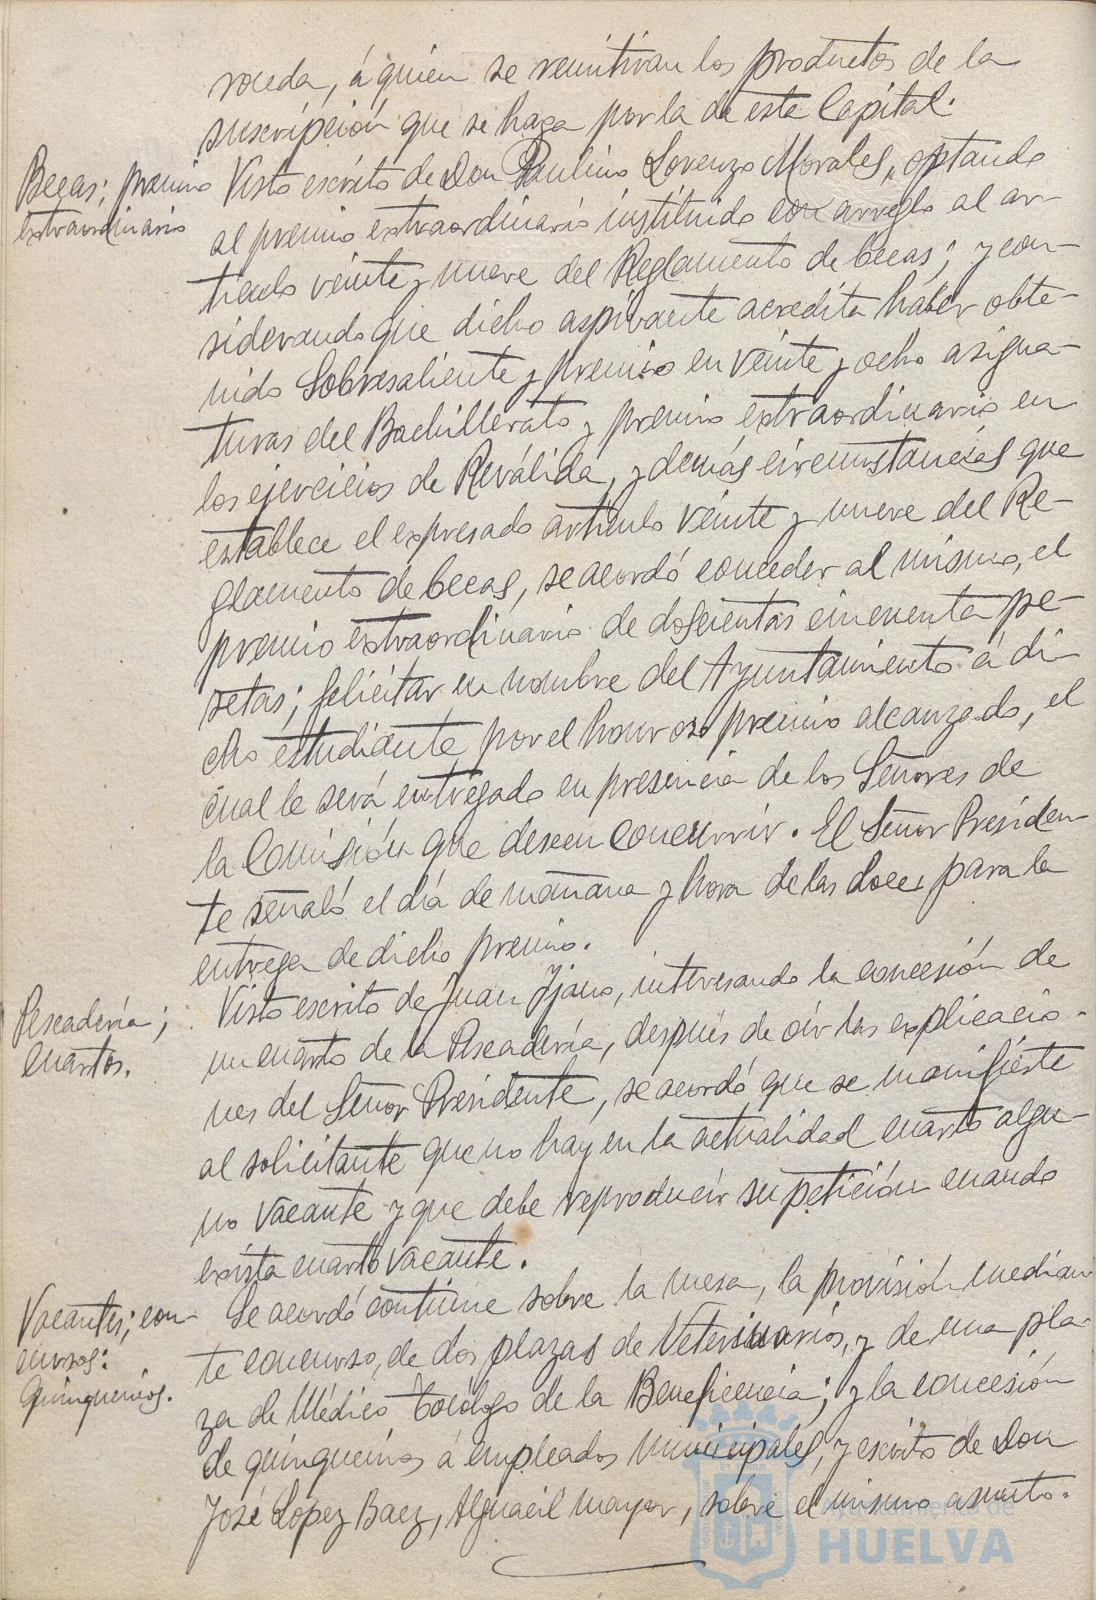 roueda, á quien se remitiran los productos de la
suscripción que se haga por la de esta Capital.
Becas; premio
extraordinario
Visto escrito de Don Paulino Lorenzo Morales, optando
al premio extraordinario instituido con arreglo al ar-
tículo veinte y nueve del Reglamento de becas; y con-
siderando que dicho aspirante acredita haber obte-
nido Sobresaliente y premio en veinte y ocho asigna-
turas del Bachillerato y premio extraordinario en
los ejercicios de Reválida, y demás circunstancias que
establece el expresado artículo veinte y nueve del Re-
glamento de becas, se acordó conceder al mismo, el
premio extraordinario de doscientas cincuenta pe-
setas; felicitar en nombre del Ayuntamiento á di-
cho estudiante por el honroso premio alcanzado, el
cual le será entregado en presencia de los Señores de
la Comisión que deseen concurrir. El Señor Presiden-
te señaló el día de mañana y hora de las doce, para la
entrega de dicho premio.
Pescadería;
cuartos.
Visto escrito de Juan Ijano, interesando la concesión de
un cuarto de la Pescadería, después de oir las explicacio-
nes del Señor Presidente, se acordó que se manifieste
al solicitante que no hay en la actualidad cuarto algu-
no vacante y que debe reproducir su petición cuando
exista cuarto vacante.
Vacantes; con-
cursos:
Quinquenios.
Se acordó continúe sobre la mesa, la provisión median-
te concurso, de dos plazas de Veterinarios, y de una pla-
za de Médico Tocólogo de la Beneficencia; y la concesión
de quinquenios á empleados municipales, y escrito de Don
José López Baez, Alguacil mayor, sobre el mismo asunto.
Ayuntamiento de
HUELVA